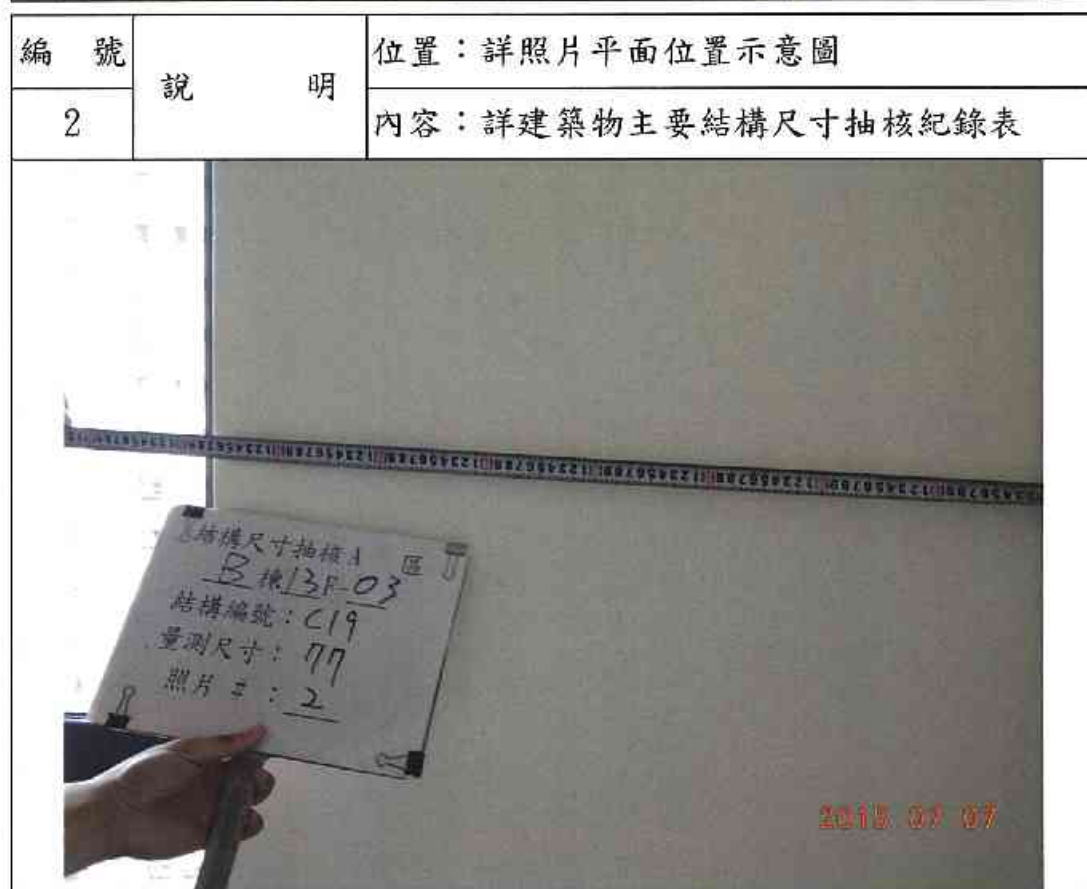 編 號
2
說 明
位置：詳照片平面位置示意圖
內容：詳建築物主要結構尺寸抽核紀錄表
結構尺寸抽核 A 區
B 棟 13F-03
結構編號：C19
量測尺寸：77
照片 #：2